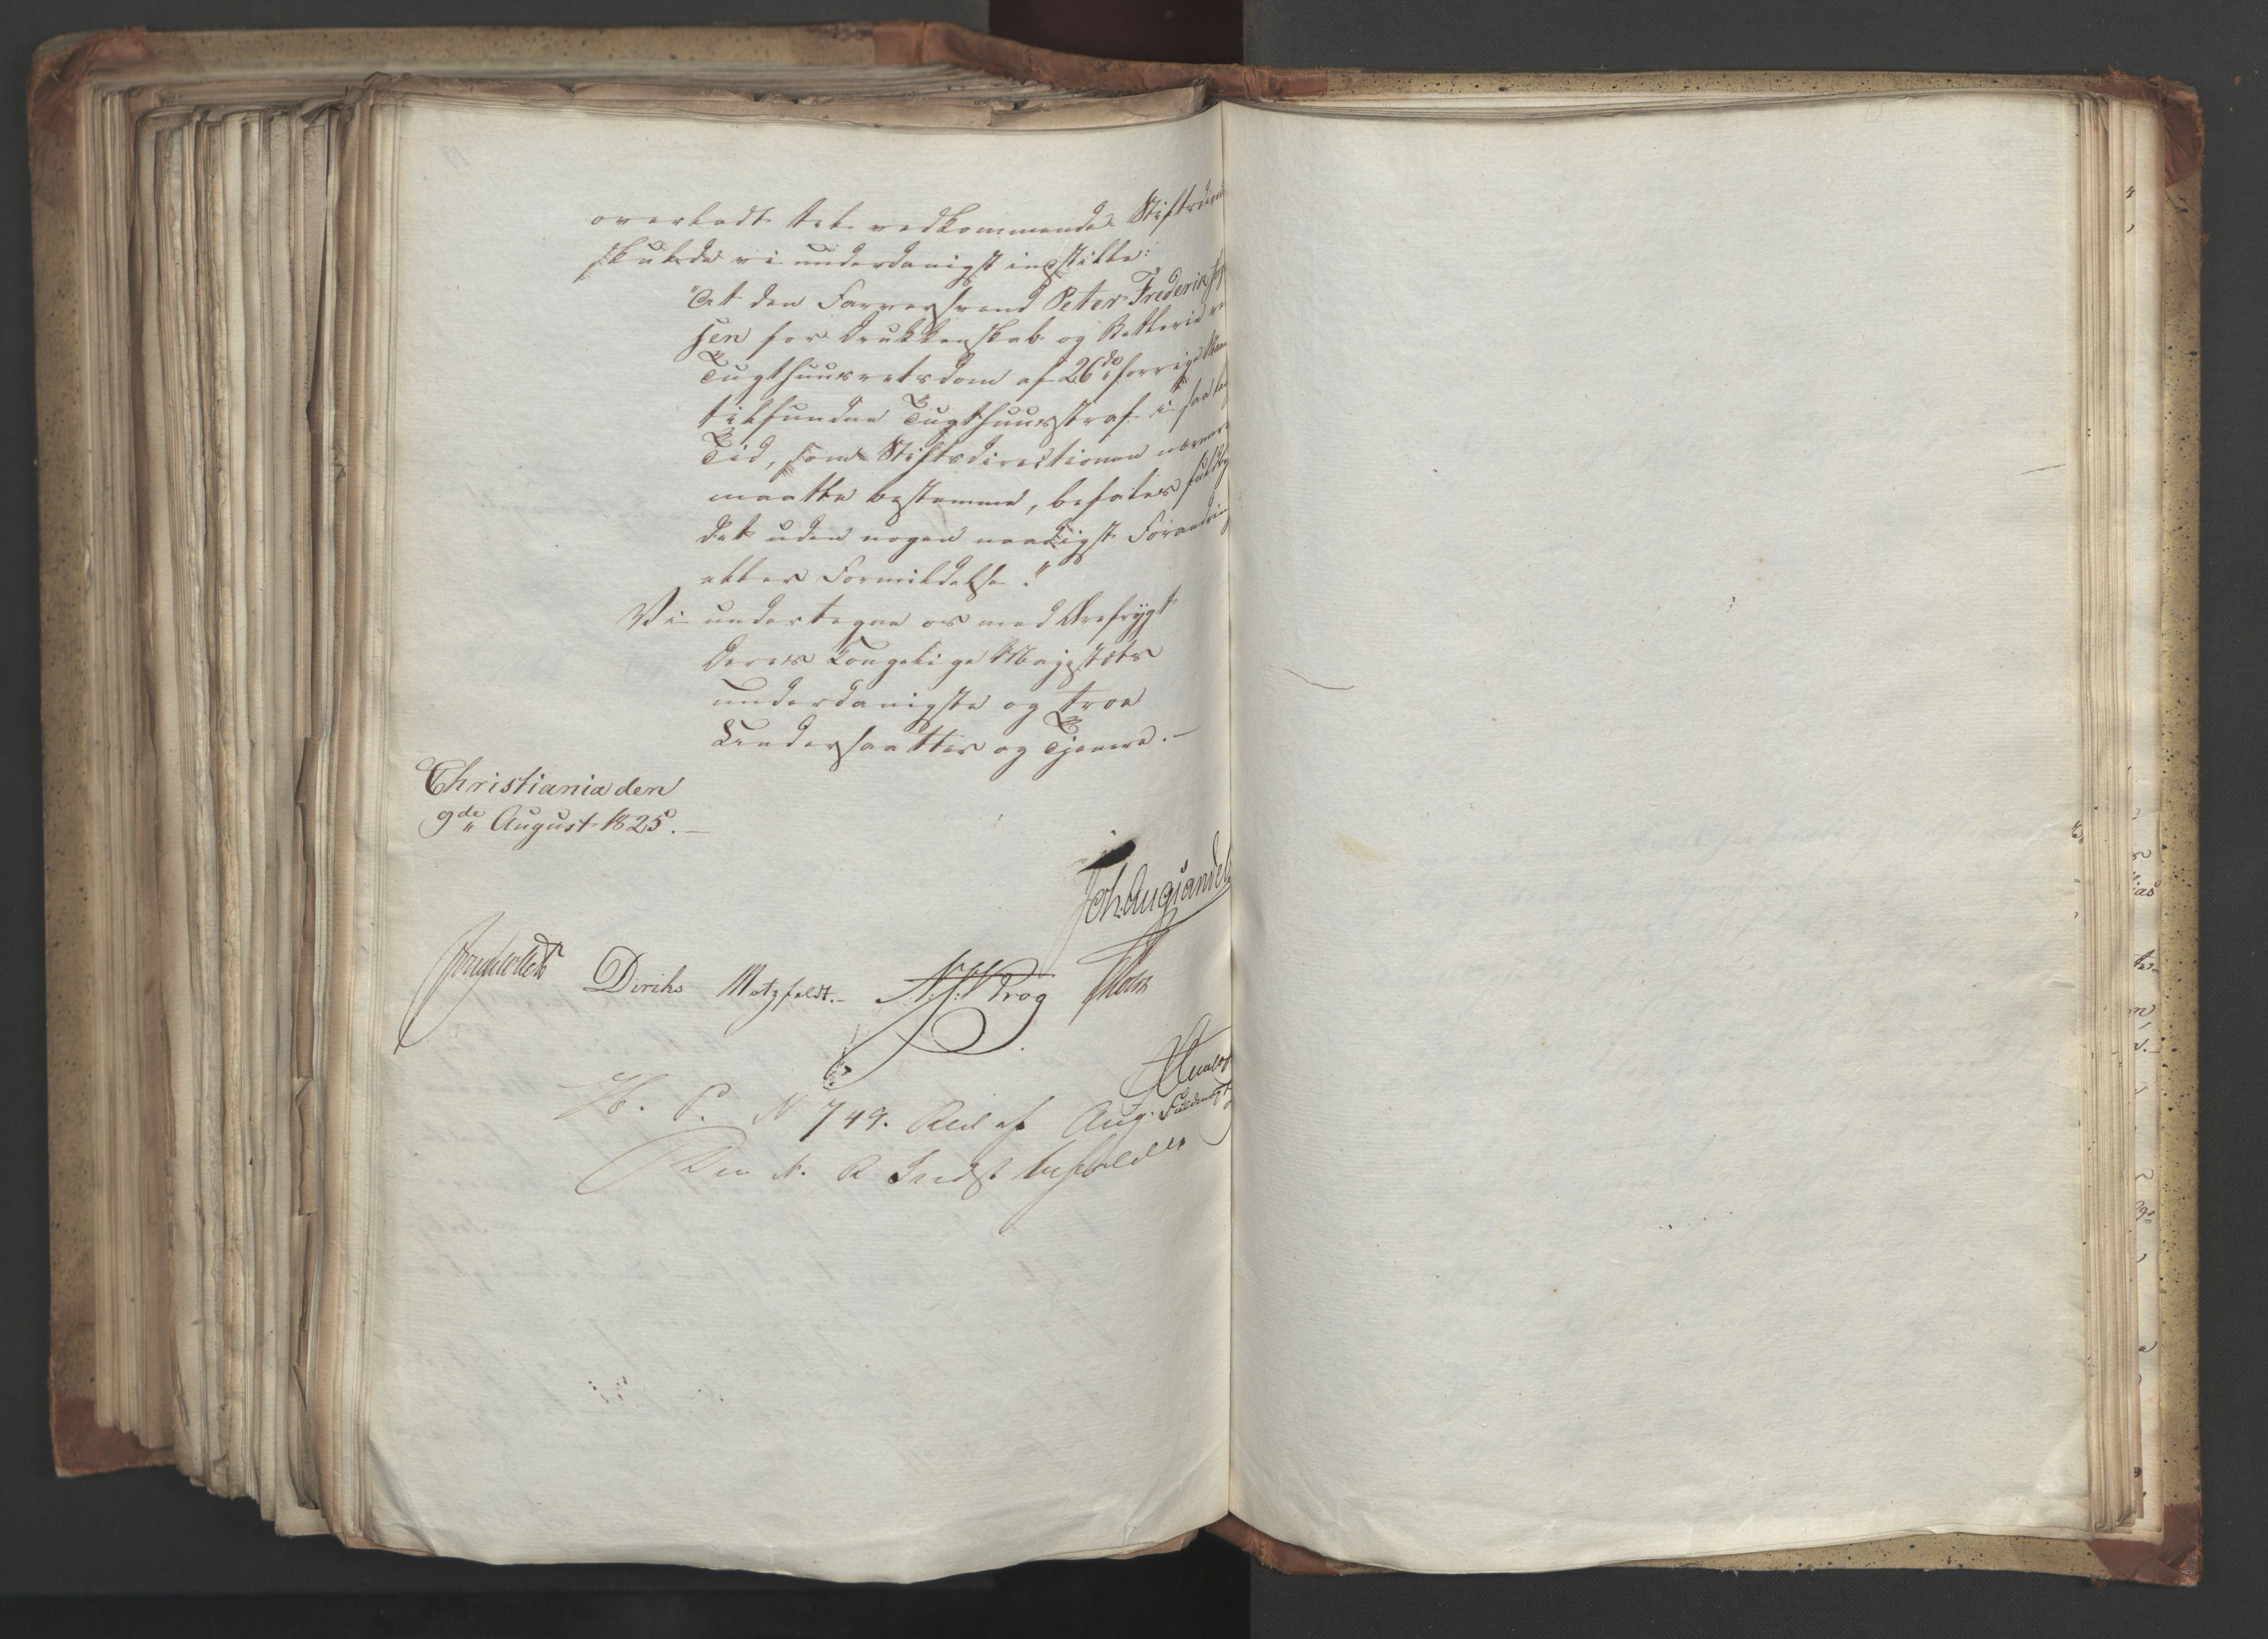 overladt til vedkommende Stiftsdirec
skulde vi underdanigst indstille:
"At den Farversvend Peter Frederik
sen for Drukkenskab og Betlerie ve
Tugthuusretsdom af 26de forrige Maa
tilfundne Tugthuusstraf i saa lang
Tid, som Stiftsdirectionen nærmere
maatte bestemme, befales fuldbyr
det uden nogen naadigst Forandring
eller Formildelse."
Vi undertegne os med Ærefrygt
Deres Kongelige Majestæts
underdanigste og troe
Undersaatter og Tjenere.-
Christiania den
9de August 1825.-
Joh. Aug. Sandels
Jonas Collett Diriks Motzfeldt.- Krog Holst
H. P. N 749. Aug.
Den N. R Indst bifaldes